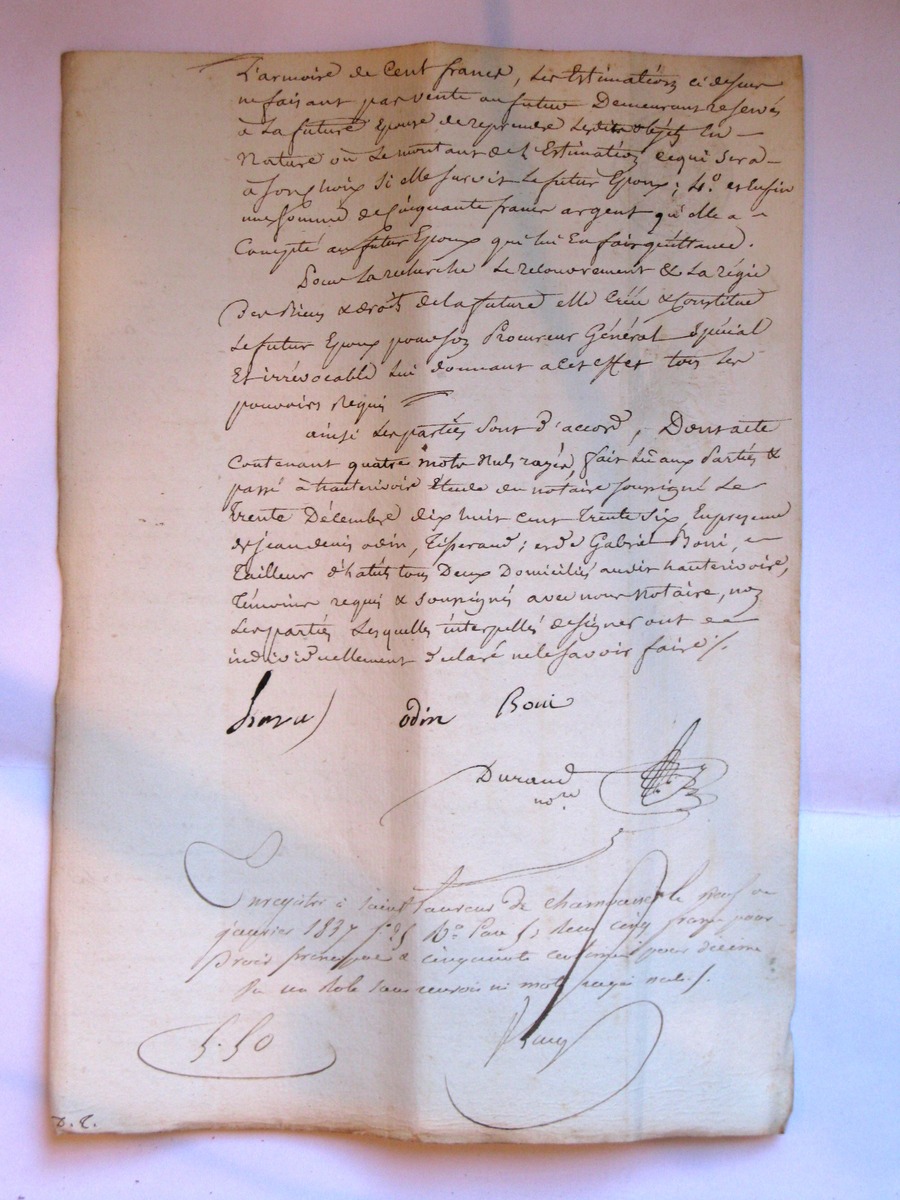 L'armoire de Cent francs, Les Estimations ci dessus
ne faisant pas vente au futur Demeurant reservés
à La future Epouse de reprendre Lesdits objets En
Nature ou Le montant de l'Estimation ce qui sera
a son choix si elle survit Le futur Epoux; 4.° et Enfin
une somme de Cinquante francs argent qu'elle a
Compté au futur Epoux qui lui En fait quittance.
Pour La recherche Le recouvrement & La régie
Des Biens & droits de la future elle Créé & Constitue
Le futur Epoux pour son Procureur Général Spécial
Et irrévocable Lui donnant a cet effet tous Les
pouvoirs Requis
ainsi Les parties sont d'accord, Dont acte
Contenant quatre mots Nuls rayés, fait Lû aux Parties &
passé à hauterivoire Etude du notaire soussigné Le
Trente Décembre dix huit cent Trente six, En presence
de jean denis odin, Tisserand; et de Gabriel Boni,
Tailleur d'habits tous Deux Domiciliés audit hauterivoire,
Témoins requis & soussignés avec nous Notaire, non
Les parties Lesquelles interpellés de signer ont
individuellement Déclaré ne le savoir faire /.
odin Boni
Durand
no.re
Enregistré à Saint Laurent de chamousset le neuf
janvier 1837 f.° 51 V.° Case 5, Reçu cinq francs pour
Droit principal & cinquante centimes pour décime
Sur un Role sans renvois ni mots rayés nuls /.
5.50